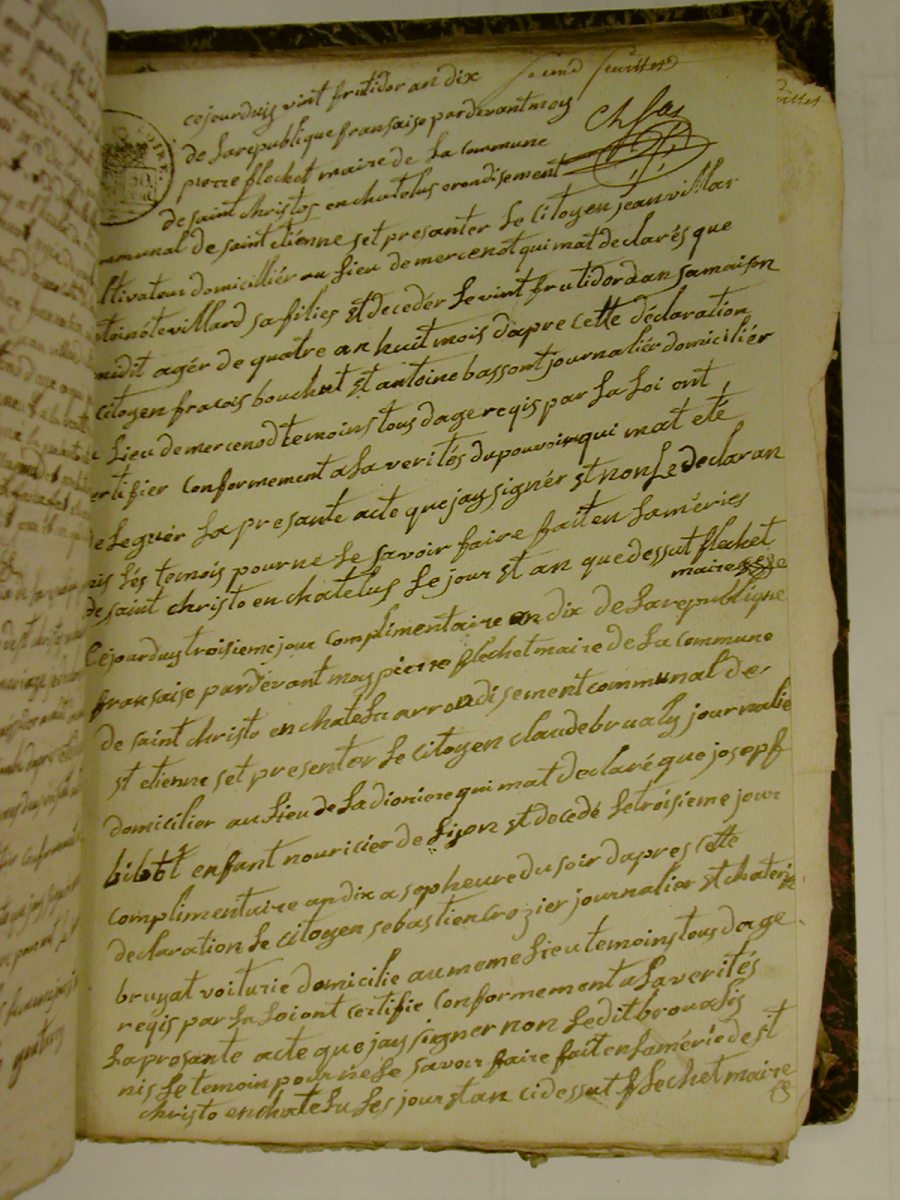 second feuillet
cejourduis vint frutidor an dix
de la republique fransaise pardevant moy
pierre flechet maire de la commune
de saint christos en chatelus arondisement
mmunal de saint etienne set presanter le Citoyen jean villar
ltivateur domicilliér au lieu de mercenot qui mat declarés que
toinéte villard sa filies et decedér le vint frutidor dan sa maison
nudit agér de quatre an huit mois dapre cette déclaration
citoyen fracois bouchut et antoine bassont journaliér domiciliér
lieu de mercenod temoins tous dage reqis par la loi ont
ertifier conformement a la verités du pouvoir qui mat eté
deleguér la presante acte que jay signér et non le declaran
nis lés temois pour ne le savoir faire fait en la méries
de saint christo en chatelus le jour et an que dessut flechet
maire
Cejourduy troisieme jour complimentaire an dix de la republique
fransaise pardevant moy pierre flechet maire de la commune
de saint christo en chatelu arrondisement communal de
st etienne set presenter le Citoyen claude brualy journalie
domicilier au lieu de la dioniere qui mat declaré que josepf
bibot enfant nouricier de lion et decedé le troisieme jour
complimentaire an dix a sep heure du soir dapres cette
declaration le Citoyen sebastien crozier journalier et chaterin
bruyat voiturie domicilie au meme lieu temoins tous dage
reqis par la loi ont certifie conformement a la verités
la prosante acte que jay signer non ledit broualis
nis le temoin pour ne le savoir faire fait en la mérie de st
christo en chatelu les jour et an cidessut flechet maire